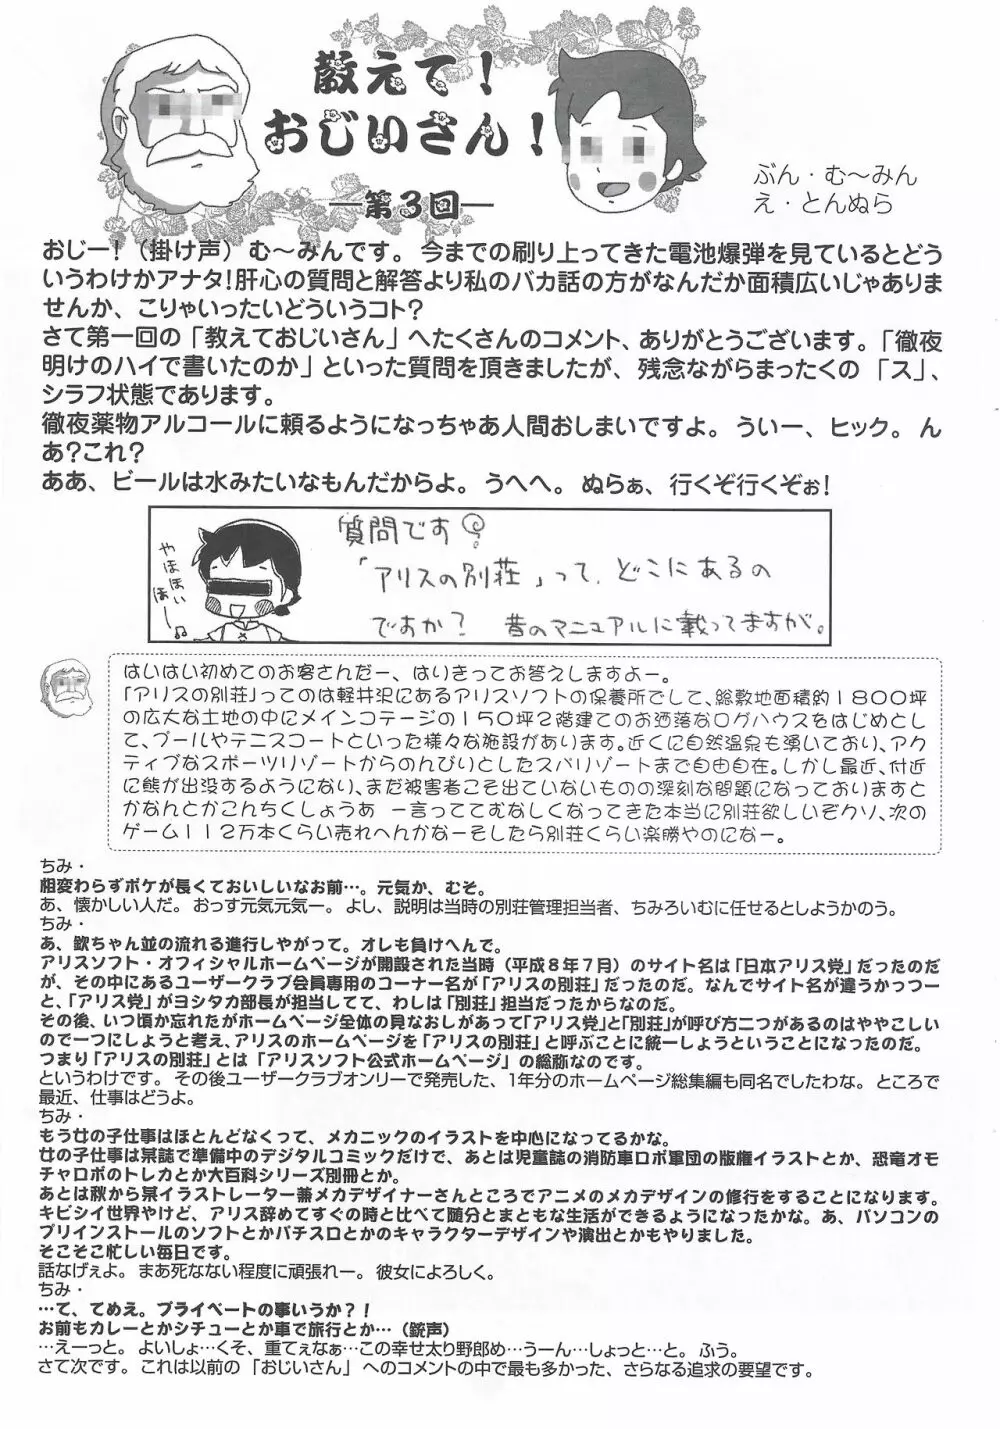 教えて!
おじいさん!
―第3回―
ぶん・む〜みん
え・とんぬら
おじー!(掛け声)む〜みんです。今までの刷り上ってきた電池爆弾を見ているとどう
いうわけかアナタ!肝心の質問と解答より私のバカ話の方がなんだか面積広いじゃありま
せんか、こりゃいったいどういうコト?
さて第一回の「教えておじいさん」へたくさんのコメント、ありがとうございます。「徹夜
明けのハイで書いたのか」といった質問を頂きましたが、残念ながらまったくの「ス」、
シラフ状態であります。
徹夜薬物アルコールに頼るようになっちゃあ人間おしまいですよ。うぃー、ヒック。ん
あ?これ?
ああ、ビールは水みたいなもんだからよ。うへへ。ぬらぁ、行くぞ行くぞぉ!
やほほぃほー♪
質問です?
「アリスの別荘」って、どこにあるの
ですか? 昔のマニュアルに載ってますが。
はいはい初めてのお客さんだー、はいきってお答えしますよー。
「アリスの別荘」ってのは軽井沢にあるアリスソフトの保養所でして、総敷地面積約1800坪
の広大な土地の中にメインコテージの150坪2階建てのお洒落なログハウスをはじめとし
て、プールやテニスコートといった様々な施設があります。近くに自然温泉も湧いており、アク
ティブなスポーツリゾートからのんびりとしたスパリゾートまで自由自在。しかし最近、付近
に熊が出没するようになり、まだ被害者こそ出ていないものの深刻な問題になっておりますと
かなんとかこんちくしょうあ 一言っててむなしくなってきた本当に別荘欲しいぞクソ、次の
ゲーム112万本くらい売れへんかなーそしたら別荘くらい楽勝やのになー。
ちみ・
相変わらずボケが長くておいしいなお前…。元気か、むそ。
あ、懐かしい人だ。おっす元気元気ー。よし、説明は当時の別荘管理担当者、ちみろいむに任せるとしようかのう。
ちみ・
あ、欽ちゃん並の流れる進行しやがって。オレも負けへんで。
アリスソフト・オフィシャルホームページが開設された当時(平成8年7月)のサイト名は「日本アリス党」だったのだ
が、その中にあるユーザークラブ会員専用のコーナー名が「アリスの別荘」だったのだ。なんでサイト名が違うかっつー
と、「アリス党」がヨシタカ部長が担当してて、わしは「別荘」担当だったからなのだ。
その後、いつ頃か忘れたがホームページ全体の見なおしがあって「アリス党」と「別荘」が呼び方二つがあるのはややこしい
ので一つにしようと考え、アリスのホームページを「アリスの別荘」と呼ぶことに統一しようということになったのだ。
つまり「アリスの別荘」とは「アリスソフト公式ホームページ」の総称なのです。
というわけです。その後ユーザークラブオンリーで発売した、1年分のホームページ総集編も同名でしたわな。ところで
最近、仕事はどうよ。
ちみ・
もう女の子仕事はほとんどなくって、メカニックのイラストを中心になってるかな。
女の子仕事は某誌で準備中のデジタルコミックだけで、あとは児童誌の消防車ロボ軍団の版権イラストとか、恐竜オモ
チャロボのトレカとか大百科シリーズ別冊とか。
あとは秋から某イラストレーター兼メカデザイナーさんところでアニメのメカデザインの修行をすることになります。
キビシイ世界やけど、アリス辞めてすぐの時と比べて随分とまともな生活ができるようになったかな。あ、パソコンの
プリインストールのソフトとかパチスロとかのキャラクターデザインや演出とかもやりました。
そこそこ忙しい毎日です。
話なげぇよ。まあ死なない程度に頑張れー。彼女によろしく。
ちみ・
…て、てめえ。プライベートの事いうか?!
お前もカレーとかシチューとか車で旅行とか…(銃声)
…えーっと。よいしょ…くそ、重てぇなぁ…この幸せ太り野郎め…うーん…しょっと…と。ふう。
さて次です。これは以前の「おじいさん」へのコメントの中で最も多かった、さらなる追求の要望です。